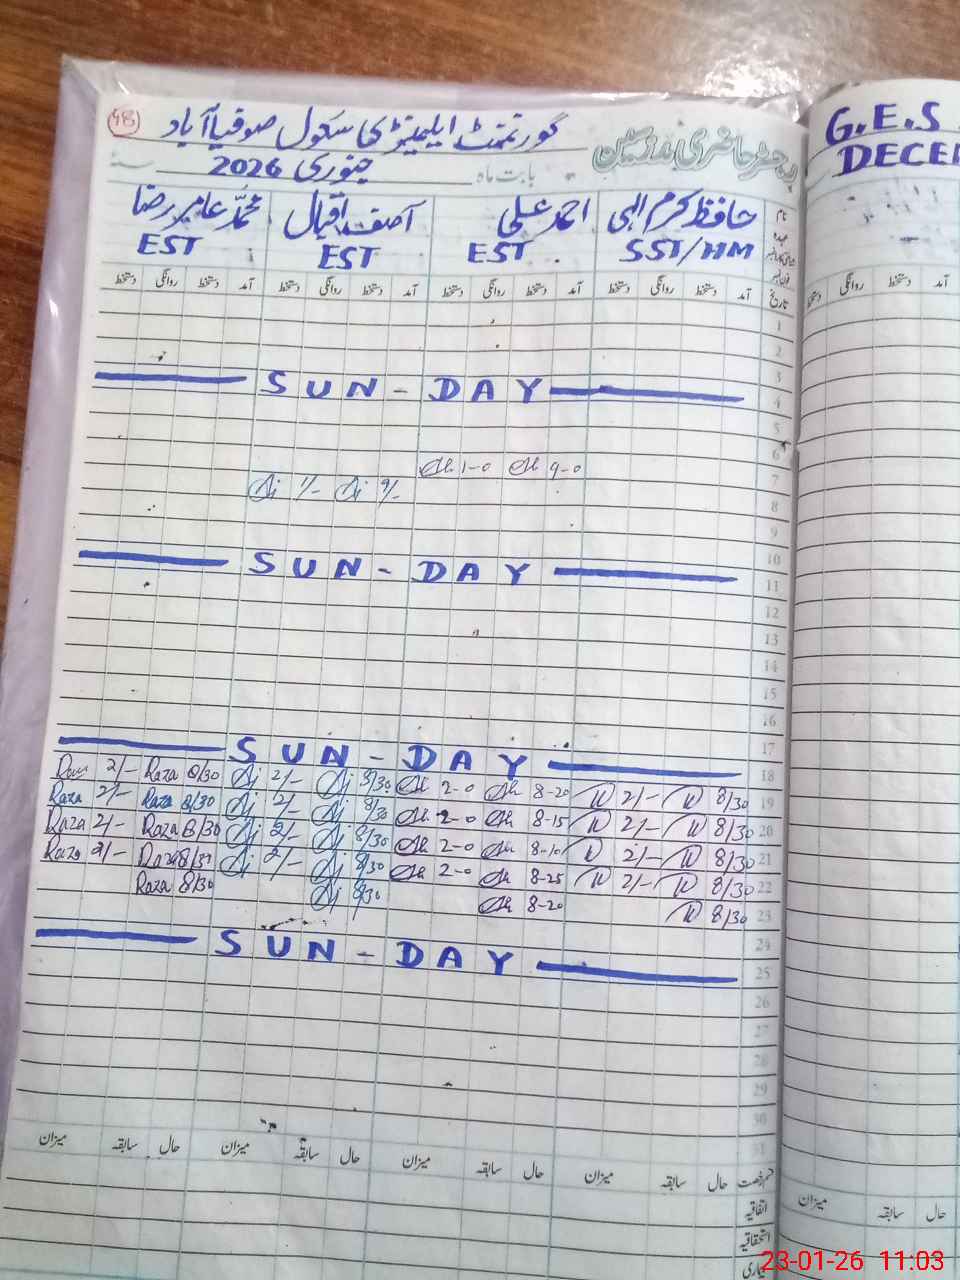 48 گورنمنٹ ایلیمنٹری سکول صوفیا آباد
رجسٹر حاضری مدرسین
بابت ماہ جنوری 2026 سنہ
نام حافظ کرم الہی احمد علی آصف اقبال محمد عامر رضا
عہدہ SST/HM EST EST EST
تاریخ آمد دستخط روانگی دستخط آمد دستخط روانگی دستخط آمد دستخط روانگی دستخط آمد دستخط روانگی دستخط
1
2
3
SUN-DAY 4
5
6
1-0 9-0 7
1/- 9/- 8
9
10
SUN-DAY 11
12
13
14
15
16
17
SUN-DAY 18
2/- Raza 8/30 2/- 8/30 2-0 8-20 2/- 8/30 19
Raza 2/- Raza 8/30 2/- 8/30 2-0 8-15 2/- 8/30 20
Raza 2/- Raza 8/30 2/- 8/30 2-0 8-10 2/- 8/30 21
Raza 2/- Raza 8/30 2/- 8/30 2-0 8-25 2/- 8/30 22
Raza 8/30 8/30 8-20 8/30 23
24
SUN-DAY 25
26
27
28
29
30
31
قسم رخصت حال سابقہ میزان حال سابقہ میزان حال سابقہ میزان حال سابقہ میزان
اتفاقیہ
استحقاقیہ
G.E.S
DECE
آمد دستخط روانگی دستخط
حال سابقہ میزان
23-01-26 11:03